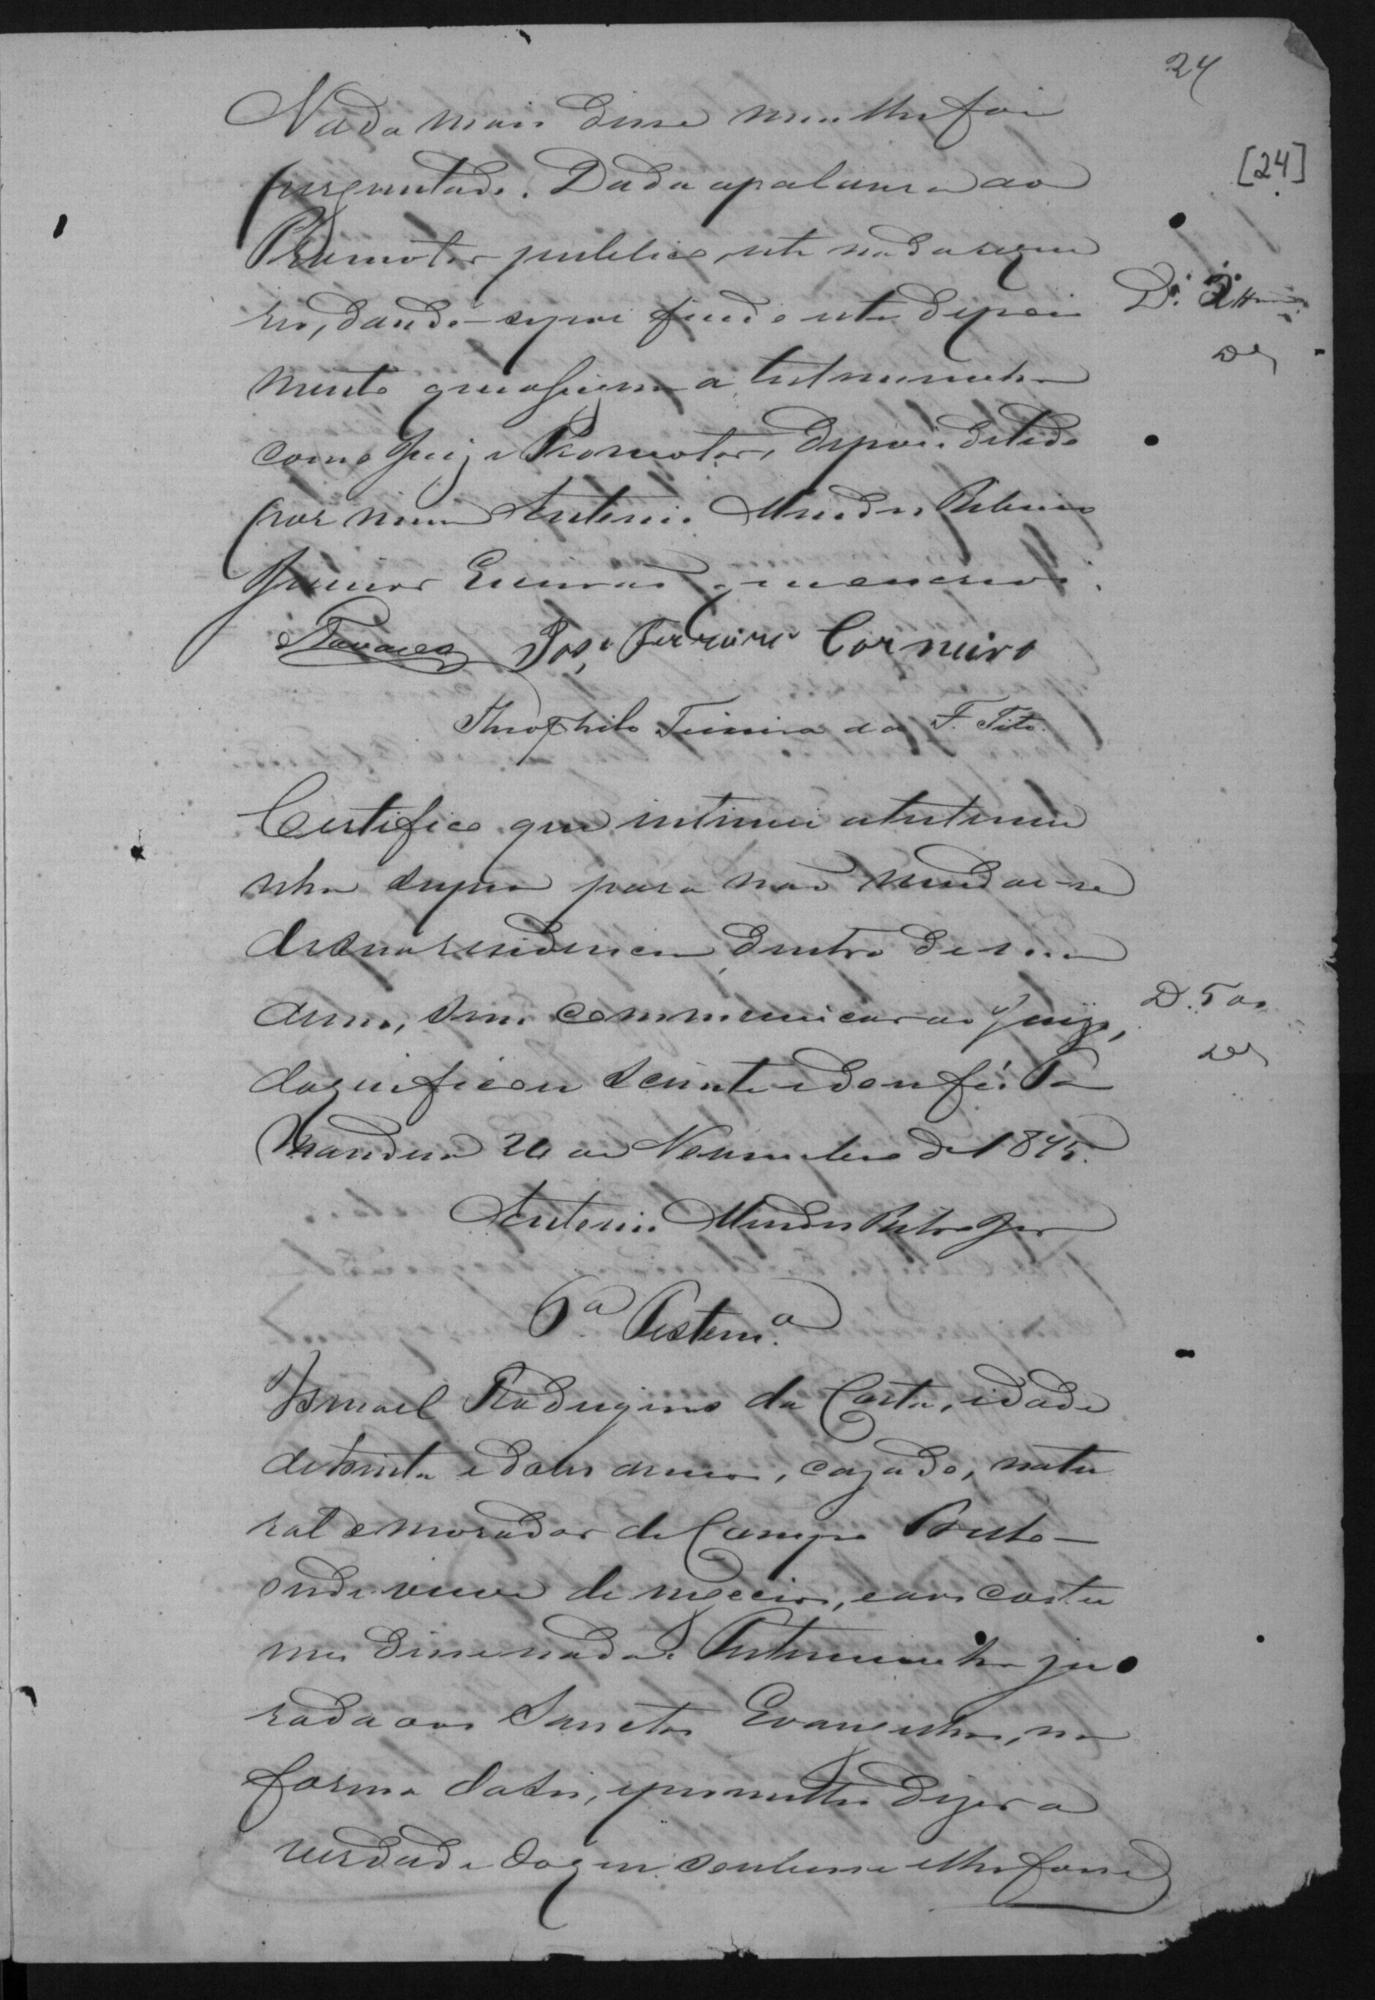 24
[24]
Nada mais disse nem lhe foi
perguntado. Dada a palavra ao
Promotor publico, este nada reque
reo, dando-se por findo este depoi
mento que assigna a testemunha
com o Juiz e Promotor, depois de lido
por mim Antonio Mendes Ribeiro
Junior Escrivão que escrevi.
Tavares José Ferreira Carneiro
Theophilo Ferreira dos F. Tito
Certifico que intimei a testemu
nha supra para não mudar-se
de sua residencia dentro de um
anno, sem communicar ao Juizo,
do que ficou sciente e dou fé.
20 de Novembro de 1875.
D. 500
Antonio Mendes Ribro Jor
6ª Testemª
Ismael Rodrigues da Costa, idade
de trinta e dois annos, cazado, natu
ral e morador de Campo
onde vive de negocio, e aos costu
mes disse nada. Testemunha ju
rada aos Sanctos Evangelhos, na
forma da Lei, e prometteu dizer a
verdade do que soubesse e lhe fosse